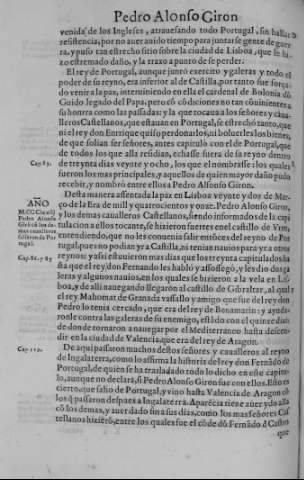 Pedro Alonso Giron
venida de los Ingleses, atrauesando todo Portugal, sin hallar
resistencia, por no auer auido tiempo para juntarse gente de guer
ra, y puso tan estrecho sitio sobre la ciudad de Lisboa, que le hi-
zo estremado daño, y la traxo a punto de se perder.
El rey de Portugal, aunque juntó exercito y galeras y todo el
poder de su reyno, era inferior al de Castilla, por tanto fue força-
do venir a la paz, interuiniendo en ella el cardenal de Bolonia
Guido legado del Papa, pero cõ cõdiciones no tan cõuinientes a
su honrra como las passadas: y la que tocaua a los señores y caua-
lleros Castellanos, que estauan en Portugal, se estrechó tanto, que
ni el rey don Enrrique quiso perdonarlos, ni boluerles los bienes,
de que solian ser señores, antes capituló con el de Portugal, que
de todos los que alla residian, echasse fuera de su reyno dentro
Cap. 83.
de treynta dias veynte y ocho, los que el nombrasse: los quales
fueron los mas principales, y aquellos de quien mayor daño pudo
recebir, y nombró entre ellos a Pedro Alfonso Giron.
Desta manera assentada la paz en Lisboa veynte y dos de Mar-
AÑO
ço de la Era de mill y quatrocientos y onze. Pedro Alonso Giron,
Pedro Alonso
y los demas caualleros Castellanos, siendo informados de la capi
tulacion a ellos tocante, se hizieron fuertes enel castillo de
entendiendo, que no les conuenia salir entõces del reyno de Por
tugal.
tugal, pues no podian yr a Castilla, ni tenian nauios para yr a otros
reynos: y assi estuuieron mas dias que los treynta capitulados ha
Cap. 86. y 87
sta que el rey don Fernando les habló y assossegó, y les dio dos ga
leras y algunos nauios, en los quales se hizieron a la vela en Lis-
boa, y de alli nauegando llegaron al castillo de Gibraltar, al qual
el rey Mahomat de Granada vassallo y amigo que fue del rey don
Pedro lo tenia cercado, que era del rey de Benamarin: y ayuda-
ronle contra las galeras de su enemigo, estãdo con el quinze dias,
de donde tornaron a nauegar por el Mediterraneo hasta descen-
dir en la ciudad de Valencia, que era del rey de Aragon.
De aqui passaron muchos destos señores y caualleros al reyno
de Ingalaterra, como lo affirma la historia del rey don Fernãdo de
Portugal, de quien se ha trasladado todo lo dicho en este capitu-
lo, aunque no declara, si Pedro Alonso Giron fue con ellos. Esto es
cierto, que salio de Portugal, y vino hasta Valencia de Aragon cõ
los q̃ passaron despues a Ingalaterra. Aparẽcia tiene auer ydo alla
cõ los demas, y auer dado fin a sus dias, como los mas señores Cas
tellanos hizierõ, entre los quales fue el cõde dõ Fernãdo d̃ Castro
que